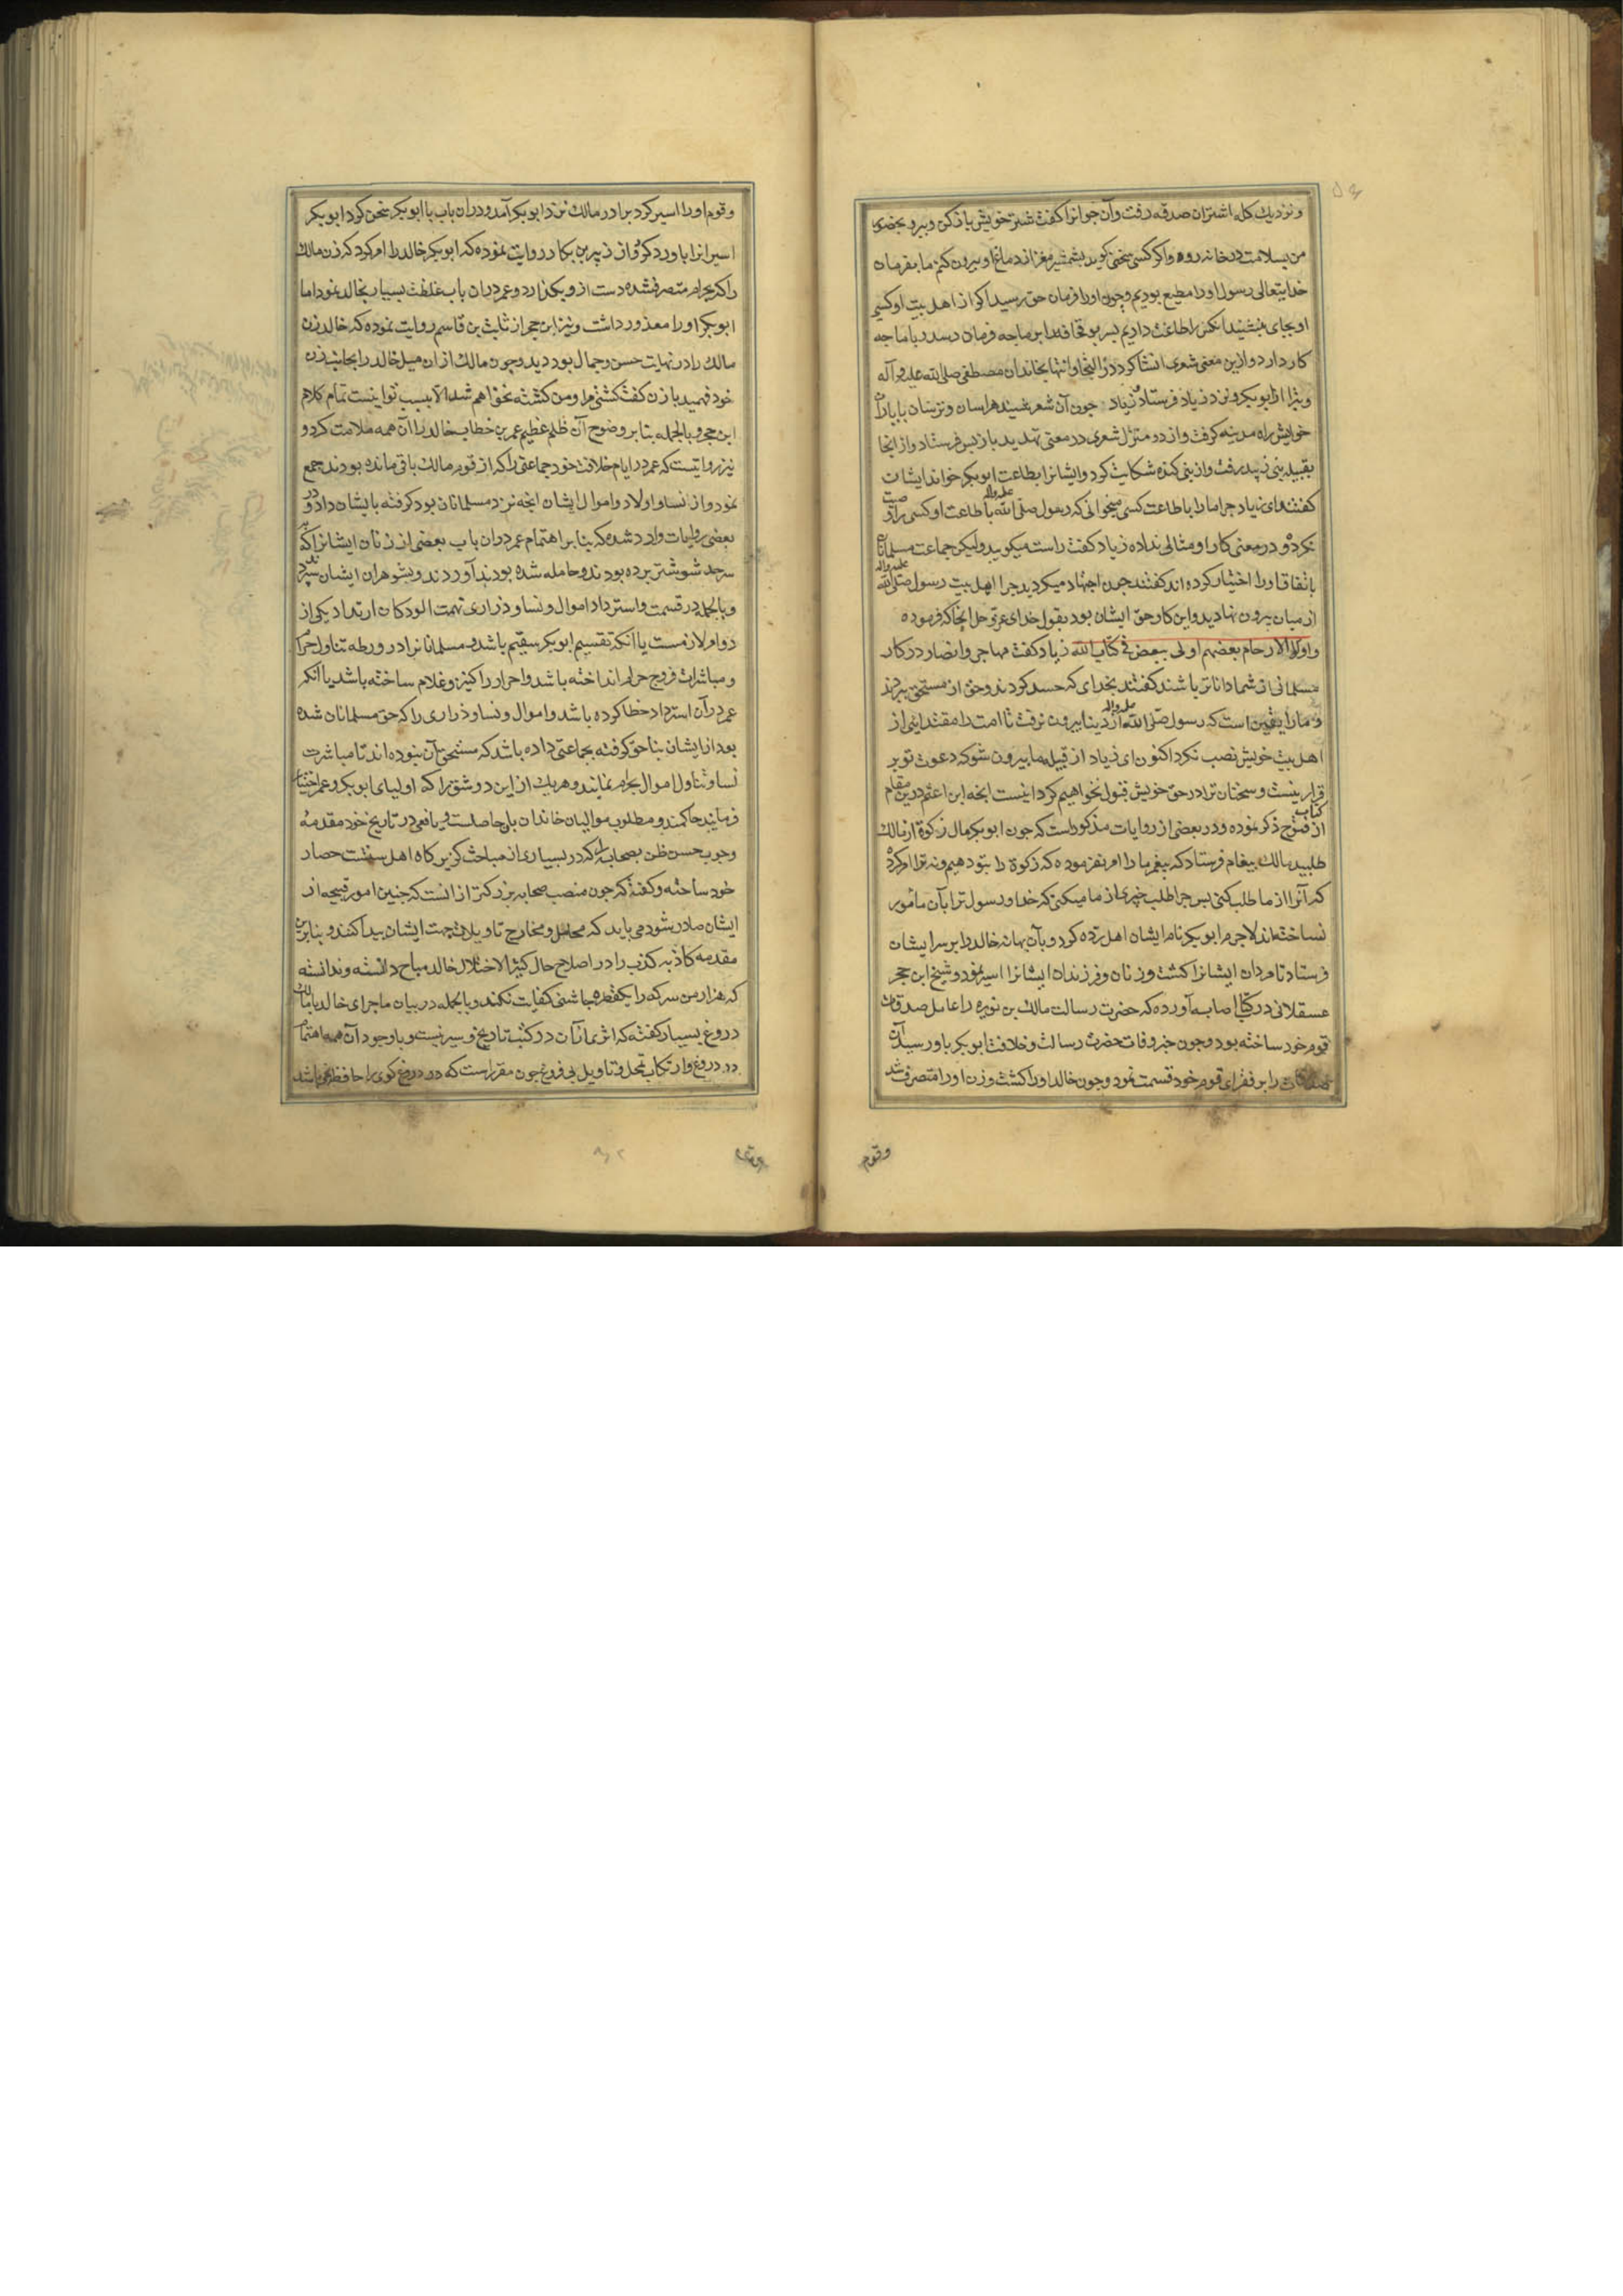 و نزدیک کله اشتران صدقه رفت و آن جوانرا کفت شتر خویش باز کن و ببر و بحضور
من بسلامت در خانه رو و اگر کسی سخنی کوید بشمشیر مغز از دماغ او بیرون کنم ما بفرمان
خدایتعالی رسول او را مطیع بودیم و چون او را فرمان حق رسید اکر از اهل بیت او کسی
او بجای بنشیند آنکس را طاعت داریم پسر بو قحافه را بر ما چه فرمان رسد و با ما چه
کار دارد و ازین معنی شعری انشا کرد در التجا و انتها بخاندان مصطفی صلی الله علیه و آله
و تبرا از ابو بکر و نزد زیاد فرستاد زیاد چون آن شعر شنید هراسان و ترسان با یاران
خویش راه مدینه کرفت و از دو منزل شعری در معنی تهدید باز پس فرستاد و از انجا
بقبیله بنی زبید رفت و از بنی کنده شکایت کرد و ایشانرا بطاعت ابو بکر خواند ایشان
کفتند ای زیاد چرا ما را باطاعت کسی میخوانی که رسول صلی الله علیه و آله باطاعت او کسی را وصیت
نکرده و در معنی کار او مثالی نداده زیاد کفت راست میکویید ولیکن جماعت مسلمانان
باتفاق او را اختیار کرده اند کفتند چون اجتهاد میکردید چرا اهل بیت رسول صلی الله علیه و اله
از میان بیرون نهادید و این کار حق ایشان بود بقول خدای عز و جل انجا که فرموده
و اولوا الارحام بعضهم اولی ببعض فی کتاب الله زیاد کفت مهاجر و انصار در کار
مسلمانی از شما داناتر باشند کفتند بخدای که حسد کردند و حق از مستحق ببردند
و ما را یقین است که رسول صلی الله علیه و اله از دنیا بیرون نرفت تا امت را مقتدایی از
اهل بیت خویش نصب نکرد اکنون ای زیاد از قبیله ما بیرون شو که دعوت تو بر
قرار نیست و سخنان ترا در حق خویش قبول نخواهیم کرد اینست انچه ابن اعثم درین مقام
از کتاب فتوح ذکر نموده و در بعضی از روایات مذکور است که چون ابو بکر مال زکوة از مالک
طلبید مالک پیغام فرستاد که پیغمبر ما را امر نفرموده که زکوة را بتو دهیم و نه ترا امر کرده
که آنرا از ما طلب کنی پس چرا طلب چیزی از ما میکنی که خدا و رسول ترا بآن مأمور
نساخته اند لاجرم ابو بکر نام ایشان اهل رده کرد و بآن بهانه خالد را بر سر ایشان
فرستاد تا مردان ایشانرا کشت و زنان و فرزندان ایشانرا اسیر نمود و شیخ ابن حجر
عسقلانی در کتاب اصابه آورده که حضرت رسالت مالک بن نویره را عامل صدقات
قوم خود ساخته بود و چون خبر وفات حضرت رسالت و خلافت ابو بکر باو رسید آن
صدقات را بر فقرای قوم خود قسمت نمود و چون خالد او را کشت و زن او را متصرف شد
وقوم
و قوم او را اسیر کرد برادر مالک نزد ابو بکر آمد و دران باب با ابو بکر سخن کرد ابو بکر
اسیرانرا باو رد کرد و از زبیر بن بکار روایت نموده که ابو بکر خالد را امر کرد که زن مالک
را که بحرام متصرف شده دست ازو بکذارد و عمر دران باب غلظت بسیار بخالد نمود اما
ابو بکر او را معذور داشت و نیز ابن حجر از ثابت بن قاسم روایت نموده که خالد زن
مالک را در نهایت حسن و جمال بود دید و چون مالک ازان میل خالد را بجانب زن
خود فهمید با زن کفت کشتی مرا و من کشته نخواهم شد الا بسبب تو اینست تمام کلام
ابن حجر و بالجمله بنا بر وضوح آن ظلم عظیم عمر بن خطاب خالد را آن همه ملامت کرد و
نیز روایتست که عمر در ایام خلافت خود جماعتی را که از قوم مالک باقی مانده بودند جمع
نمود و از نسا و اولاد و اموال ایشان انچه نزد مسلمانان بود کرفته بایشان داد و در
بعضی روایات وارد شده که بنا بر اهتمام عمر دران باب بعضی از زنان ایشانرا که تا
سرحد شوشتر برده بودند و حامله شده بودند آوردند و بشوهران ایشان سپردند
و بالجمله در قسمت و استرداد اموال و نسا و ذراری تهمت الودکان ارتداد یکی از
دو امر لازمست یا آنکه تقسیم ابو بکر سقیم باشد و مسلمانانرا در ورطه تناول حرام
و مباشرات فروج حرام انداخته باشد و احرار را کنیز و غلام ساخته باشد یا آنکه
عمر در آن استرداد خطا کرده باشد و اموال و نسا و ذراری را که حق مسلمانان شده
بود از ایشان بناحق کرفته بجماعتی داده باشد که مستحق آن نبوده اند تا مباشرت
نسا و تناول اموال بحرام نمایند و هر یک از این دو شق را که اولیای ابو بکر و عمر اختیار
فرمایند حاکمند و مطلوب موالیان خاندان بآن حاصلست و یافعی در تاریخ خود مقدمه
وجوب حسن ظن بصحابه را که در بسیاری از مباحث کریزکاه اهل سنتست حصار
خود ساخته و کفته که چون منصب صحابه بزرکتر از آنست که چنین امور قبیحه از
ایشان صادر شود می باید که محامل و مخارج تاویلات جهت ایشان پیدا کنند و بنا برین
مقدمه کاذبه کذب را در اصلاح حال کثیر الاختلال خالد مباح دانسته و ندانسته
که هزار من سرکه را یکقطره چاشنی کفایت نکند و بالجمله در بیان ماجرای خالد با مالک
دروغ بسیار کفته که اثری از آن در کتب تاریخ و سیر نیست و با وجود آن همه اهتمام
در دروغ و ارتکاب تمحل و تاویل بی فروغ چون مقررست که دروغ کوی را حافظه نمی باشد